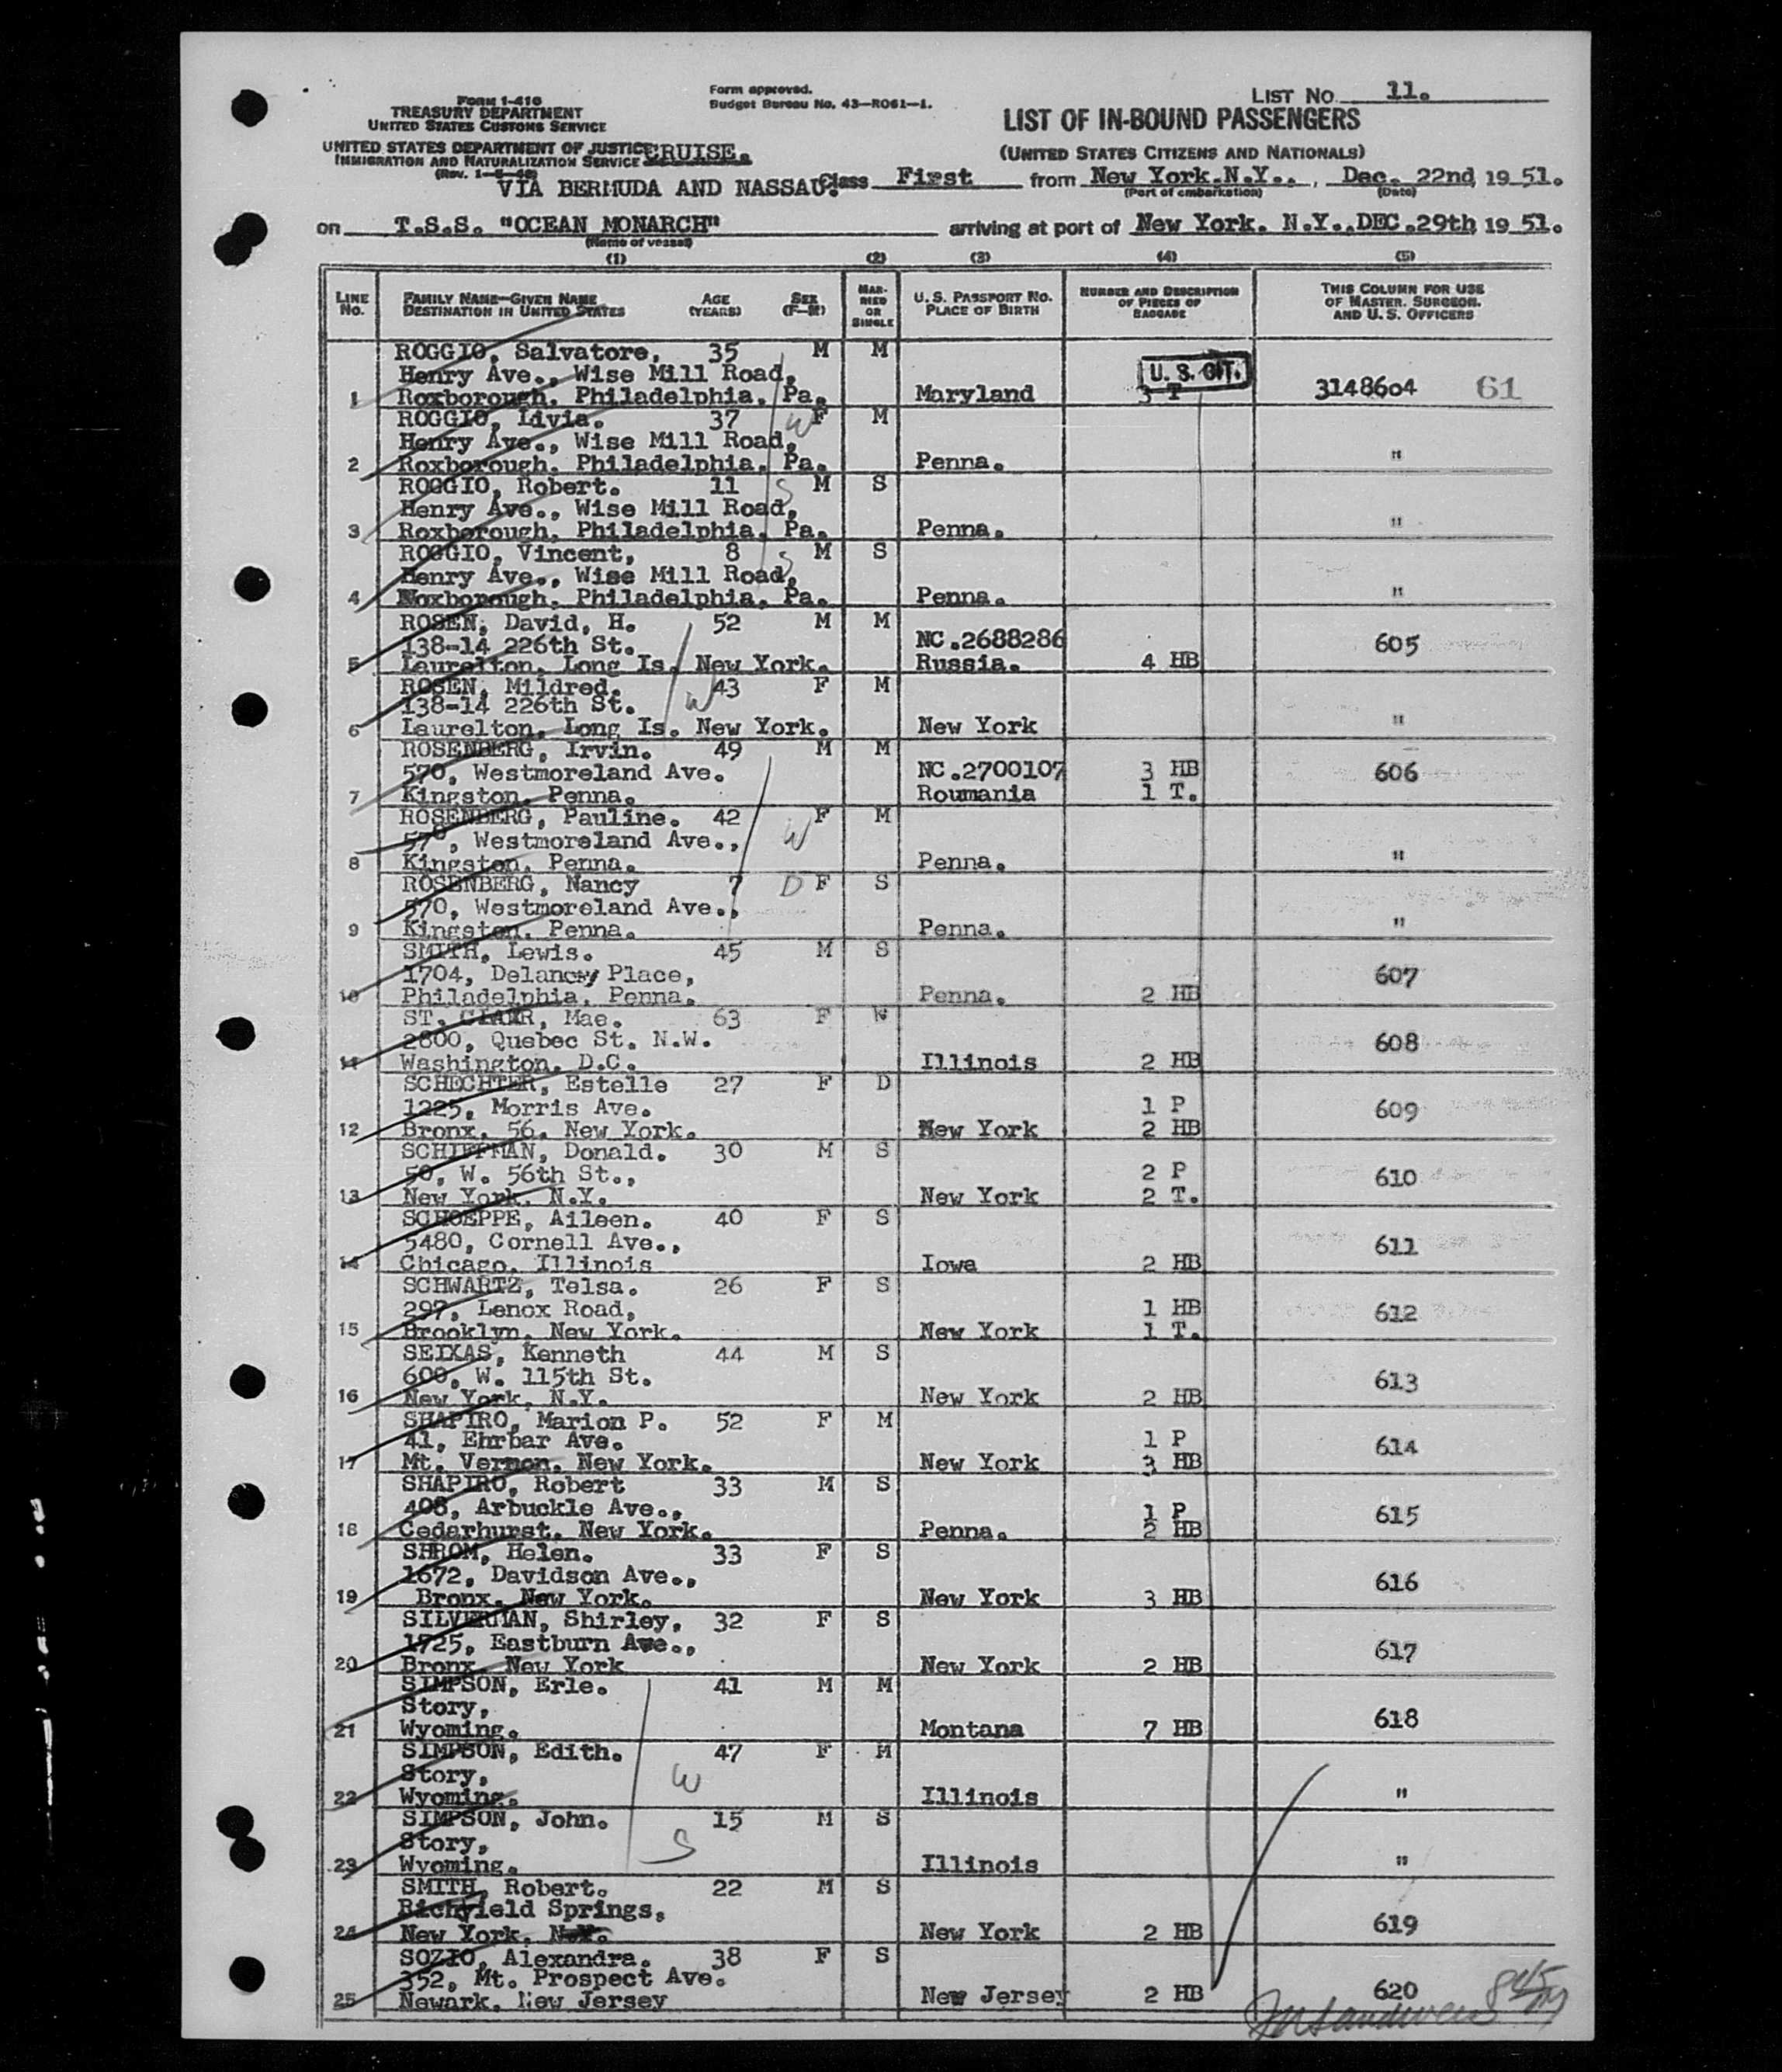 Form 1-416
TREASURY DEPARTMENT
UNITED STATES CUSTOMS SERVICE
UNITED STATES DEPARTMENT OF JUSTICE
IMMIGRATION AND NATURALIZATION SERVICE
CRUISE.
Form approved.
Budget Bureau No. 43—RO61—1.
LIST NO. 11.
LIST OF IN-BOUND PASSENGERS
(UNITED STATES CITIZENS AND NATIONALS)
VIA BERMUDA AND NASSAU. Class First from New York.N.Y.. , Dec. 22nd, 19 51.
(Port of embarkation) (Date)
on T.S.S. "OCEAN MONARCH" arriving at port of New York. N.Y.,DEC.29th, 19 51.
(Name of vessel)
(1) (2) (3) (4) (5)
LINE No. FAMILY NAME—GIVEN NAME DESTINATION IN UNITED STATES AGE (YEARS) SEX (F—M) MARRIED OR SINGLE U. S. PASSPORT NO. PLACE OF BIRTH NUMBER AND DESCRIPTION OF PIECES OF BAGGAGE THIS COLUMN FOR USE OF MASTER, SURGEON, AND U. S. OFFICERS
ROGGIO, Salvatore, 35 M M
Henry Ave., Wise Mill Road, U. S. CIT.
1 Roxborough, Philadelphia, Pa. Maryland 3 T 3148604 61
ROGGIO, Livia. 37 W F M
Henry Ave., Wise Mill Road,
2 Roxborough, Philadelphia, Pa. Penna. "
ROGGIO, Robert. 11 S M S
Henry Ave., Wise Mill Road,
3 Roxborough, Philadelphia, Pa. Penna. "
ROGGIO, Vincent, 8 S M S
Henry Ave., Wise Mill Road,
4 Roxborough, Philadelphia, Pa. Penna. "
ROSEN, David, H. 52 M M
138-14 226th St. NC.2688286 605
5 Laurelton, Long Is. New York. Russia. 4 HB
ROSEN, Mildred. W 43 F M
138-14 226th St.
6 Laurelton, Long Is. New York. New York "
ROSENBERG, Irvin. 49 M M
570, Westmoreland Ave. NC.2700107 3 HB 606
7 Kingston, Penna. Roumania 1 T.
ROSENBERG, Pauline. 42 W F M
570, Westmoreland Ave.,
8 Kingston, Penna. Penna. "
ROSENBERG, Nancy 7 D F S
570, Westmoreland Ave.,
9 Kingston, Penna. Penna. "
SMITH, Lewis. 45 M S
1704, Delancey Place, 607
10 Philadelphia, Penna. Penna. 2 HB
ST. CLAIR, Mae. 63 F W
2800, Quebec St. N.W. 608
11 Washington, D.C. Illinois 2 HB
SCHECHTER, Estelle 27 F D
1225, Morris Ave. 1 P 609
12 Bronx, 56, New York. New York 2 HB
SCHIFFMAN, Donald. 30 M S
50, W. 56th St., 2 P 610
13 New York, N.Y. New York 2 T.
SCHOEPPE, Aileen. 40 F S
5480, Cornell Ave., 611
14 Chicago, Illinois Iowa 2 HB
SCHWARTZ, Telsa. 26 F S
297, Lenox Road, 1 HB 612
15 Brooklyn, New York. New York 1 T.
SEIXAS, Kenneth 44 M S
600, W. 115th St. 613
16 New York, N.Y. New York 2 HB
SHAPIRO, Marion P. 52 F M
41, Ehrbar Ave. 1 P 614
17 Mt. Vernon, New York. New York 3 HB
SHAPIRO, Robert 33 M S
408, Arbuckle Ave., 1 P 615
18 Cedarhurst, New York. Penna. 2 HB
SHROM, Helen. 33 F S
1672, Davidson Ave., 616
19 Bronx, New York. New York 3 HB
SILVERMAN, Shirley, 32 F S
1725, Eastburn Ave., 617
20 Bronx, New York New York 2 HB
SIMPSON, Erle. 41 M M
Story, 618
21 Wyoming. Montana 7 HB
SIMPSON, Edith. 47 F M
Story, W
22 Wyoming. Illinois "
SIMPSON, John. 15 M S
Story, S
23 Wyoming. Illinois "
SMITH, Robert. 22 M S
Richfield Springs, 619
24 New York, N.Y. New York 2 HB
SOZIO, Alexandra. 38 F S
352, Mt. Prospect Ave. 620
25 Newark, New Jersey New Jersey 2 HB